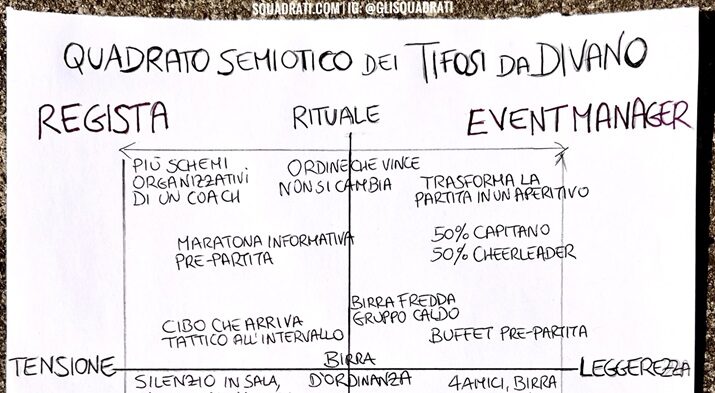 SQUADRATI.COM | IG: @GLISQUADRATI
QUADRATO SEMIOTICO DEI TIFOSI DA DIVANO
REGISTA
RITUALE
EVENT MANAGER
PIÙ SCHEMI
ORGANIZZATIVI
DI UN COACH
ORDINE CHE VINCE
NON SI CAMBIA
TRASFORMA LA
PARTITA IN UN APERITIVO
MARATONA INFORMATIVA
PRE-PARTITA
50% CAPITANO
50% CHEERLEADER
BIRRA FREDDA
GRUPPO CALDO
CIBO CHE ARRIVA
TATTICO ALL'INTERVALLO
BUFFET PRE-PARTITA
TENSIONE
BIRRA
D'ORDINANZA
LEGGEREZZA
SILENZIO IN SALA,
4 AMICI, BIRRA